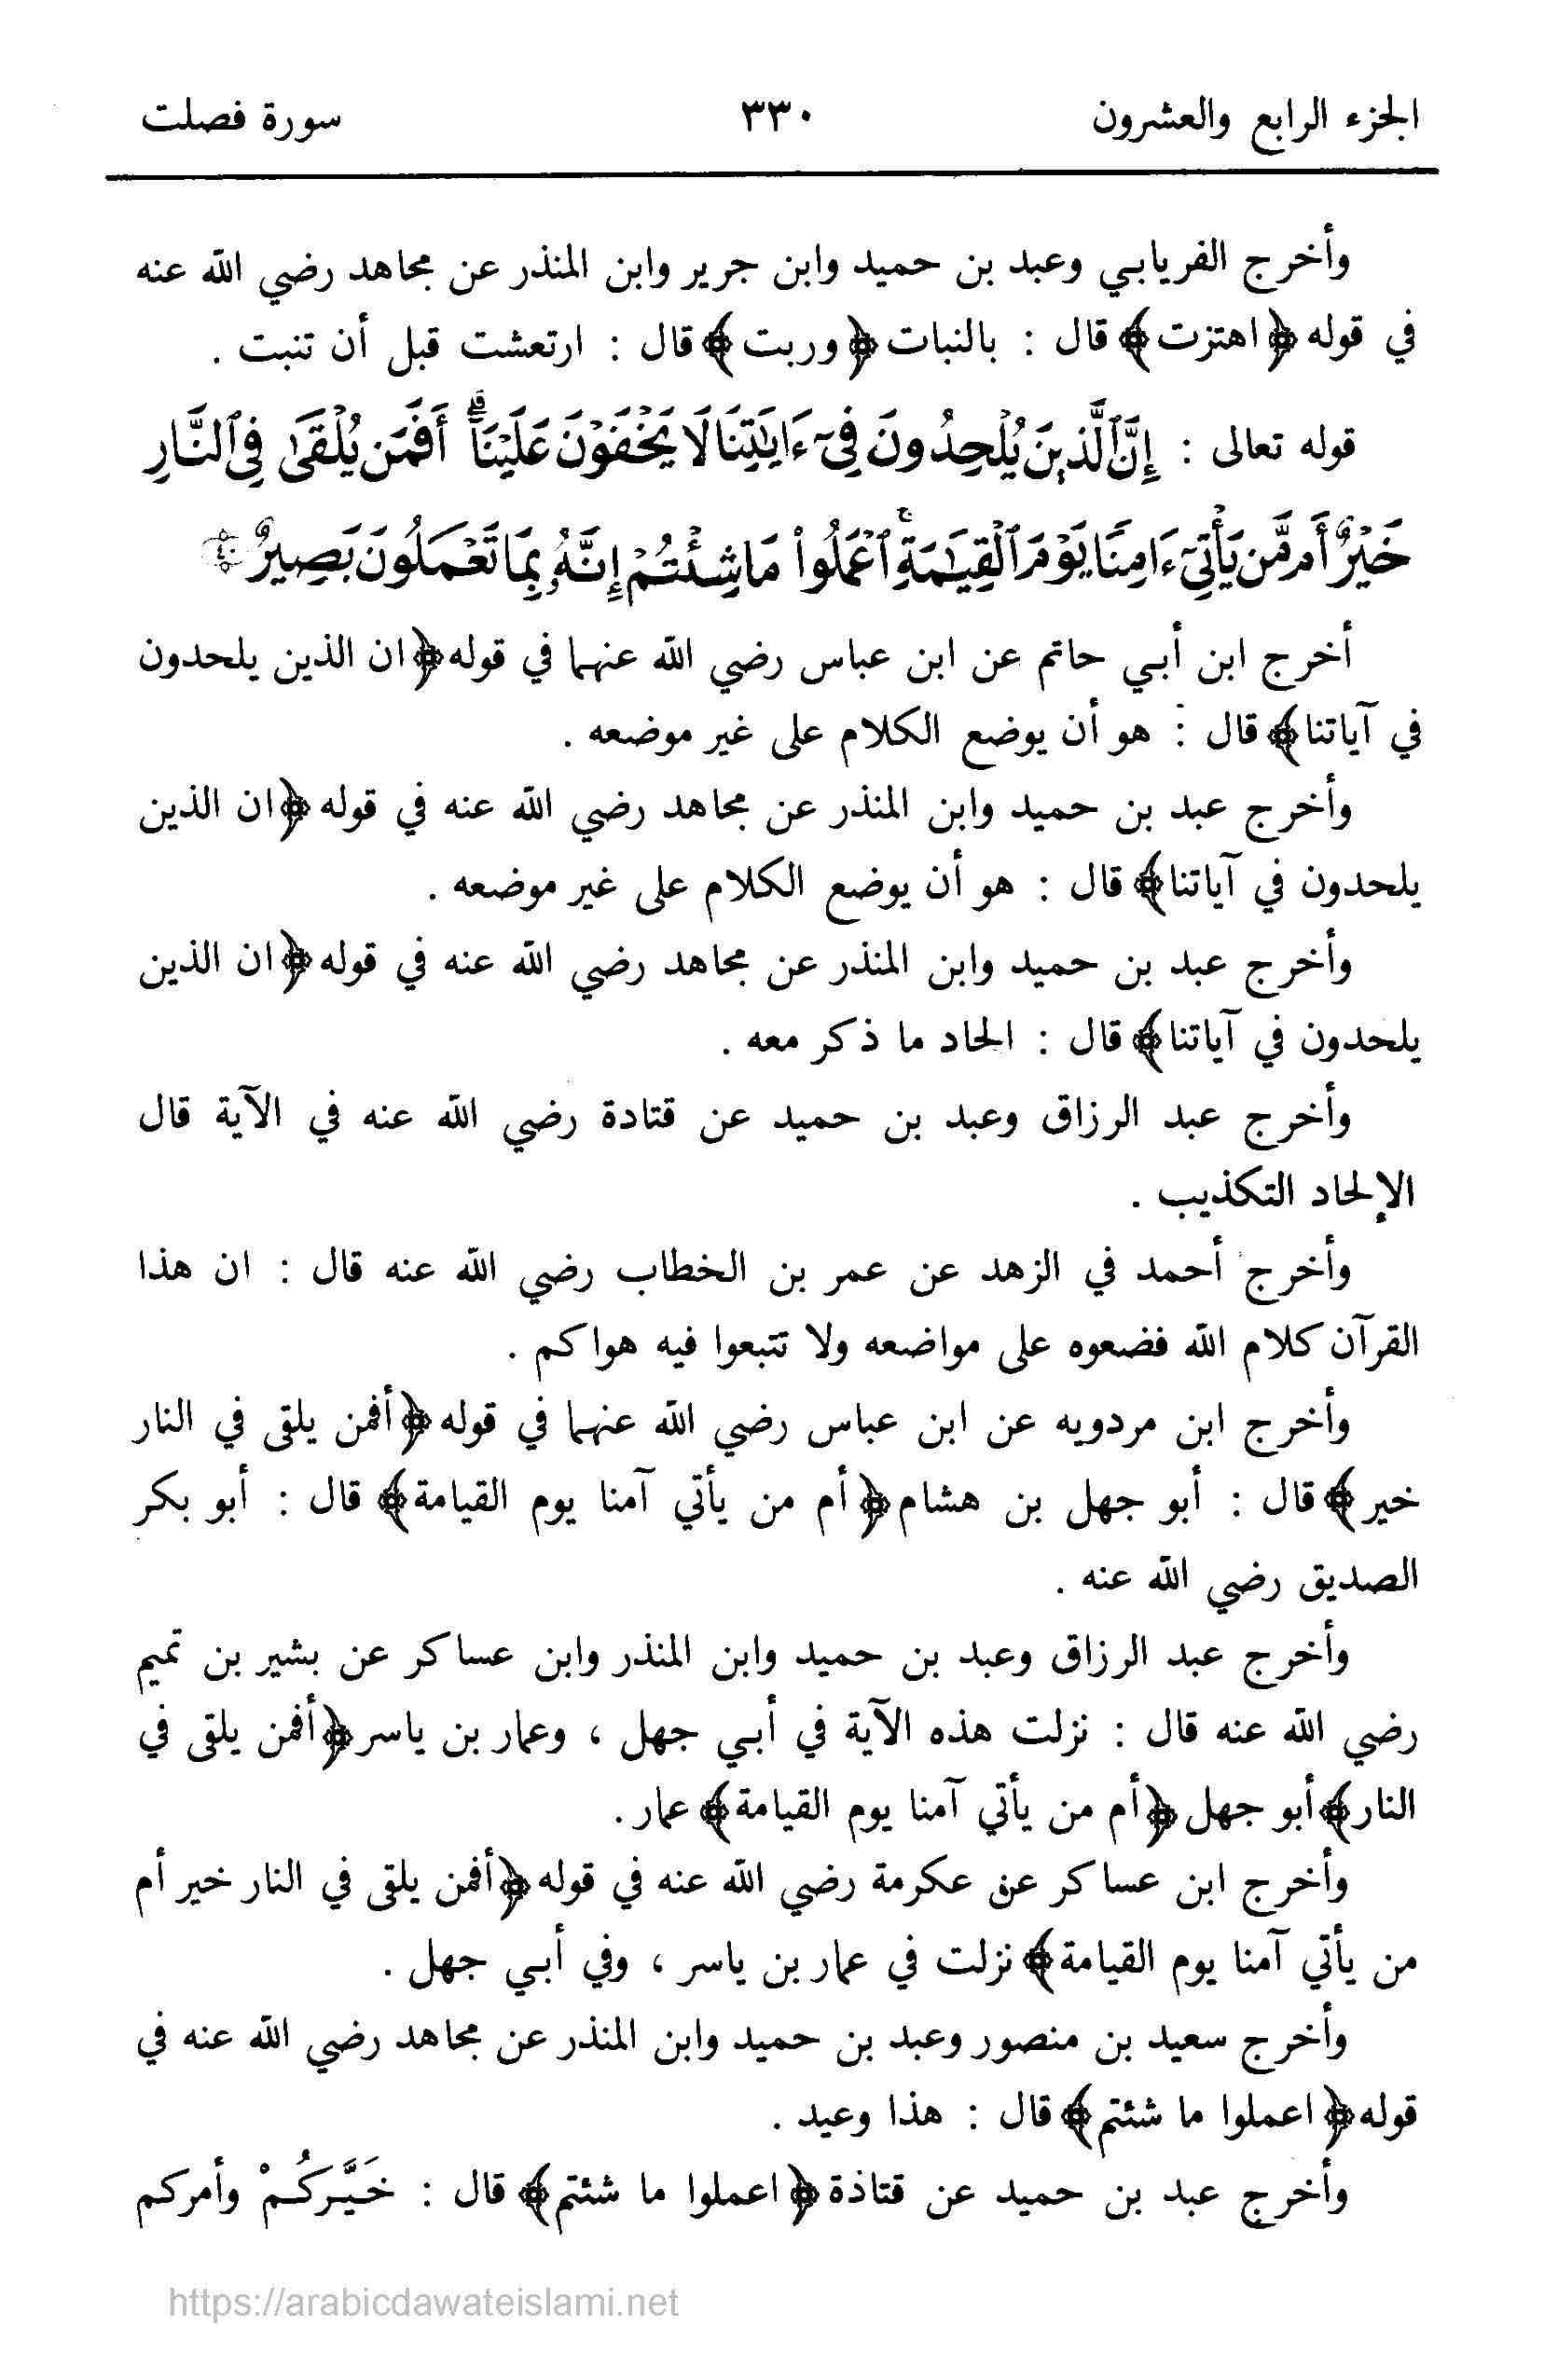 الجزء الرابع والعشرون ٣٣٠ سورة فصلت
وأخرج الفريابي وعبد بن حميد وابن جرير وابن المنذر عن مجاهد رضي الله عنه
في قوله ﴿اهتزت﴾ قال : بالنبات ﴿وربت﴾ قال : ارتعشت قبل أن تنبت .
قوله تعالى : إِنَّ ٱلَّذِينَ يُلْحِدُونَ فِىٓ ءَايَٰتِنَا لَا يَخْفَوْنَ عَلَيْنَآ ۗ أَفَمَن يُلْقَىٰ فِى ٱلنَّارِ
خَيْرٌ أَم مَّن يَأْتِىٓ ءَامِنًا يَوْمَ ٱلْقِيَٰمَةِ ۚ ٱعْمَلُوا۟ مَا شِئْتُمْ إِنَّهُۥ بِمَا تَعْمَلُونَ بَصِيرٌ
أخرج ابن أبي حاتم عن ابن عباس رضي الله عنهما في قوله ﴿ان الذين يلحدون
في آياتنا﴾ قال : هو أن يوضع الكلام على غير موضعه .
وأخرج عبد بن حميد وابن المنذر عن مجاهد رضي الله عنه في قوله ﴿ان الذين
يلحدون في آياتنا﴾ قال : هو أن يوضع الكلام على غير موضعه .
وأخرج عبد بن حميد وابن المنذر عن مجاهد رضي الله عنه في قوله ﴿ان الذين
يلحدون في آياتنا﴾ قال : الحاد ما ذكر معه .
وأخرج عبد الرزاق وعبد بن حميد عن قتادة رضي الله عنه في الآية قال
الإلحاد التكذيب .
وأخرج أحمد في الزهد عن عمر بن الخطاب رضي الله عنه قال : ان هذا
القرآن كلام الله فضعوه على مواضعه ولا تتبعوا فيه هواكم .
وأخرج ابن مردويه عن ابن عباس رضي الله عنهما في قوله ﴿أفمن يلقى في النار
خير﴾ قال : أبو جهل بن هشام ﴿أم من يأتي آمنا يوم القيامة﴾ قال : أبو بكر
الصديق رضي الله عنه .
وأخرج عبد الرزاق وعبد بن حميد وابن المنذر وابن عساكر عن بشير بن تميم
رضي الله عنه قال : نزلت هذه الآية في أبي جهل ، وعمار بن ياسر ﴿أفمن يلقى في
النار﴾ أبو جهل ﴿أم من يأتي آمنا يوم القيامة﴾ عمار .
وأخرج ابن عساكر عن عكرمة رضي الله عنه في قوله ﴿أفمن يلقى في النار خير أم
من يأتي آمنا يوم القيامة﴾ نزلت في عمار بن ياسر ، وفي أبي جهل .
وأخرج سعيد بن منصور وعبد بن حميد وابن المنذر عن مجاهد رضي الله عنه في
قوله ﴿اعملوا ما شئتم﴾ قال : هذا وعيد .
وأخرج عبد بن حميد عن قتاذة ﴿اعملوا ما شئتم﴾ قال : خَيَّرَكُمْ وأمركم
https://arabicdawateislami.net